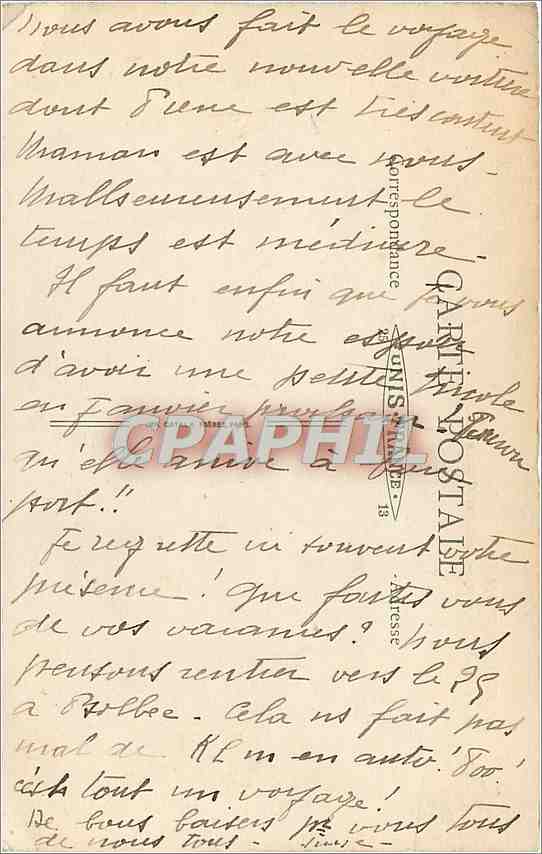 Nous avons fait le voyage
dans notre nouvelle voiture
dont Pierre est très content
Maman est avec nous -
Malheureusement le
temps est médiocre -
Il faut enfin que je vous
annonce notre espoir
d'avoir une petite
en Janvier prochain !
qu'elle arrive à bon
port !!
Je regrette ici souvent votre
présence ! Que faites vous
de vos vacances ? Nous
pensons rentrer vers le 25
à Bolbec - Cela ns fait pas
mal de Klm en auto ! 800 !
c'est tout un voyage !
De bons baisers pr vous tous
de nous tous -
CARTE POSTALE
Correspondance
Adresse
UNIS FRANCE
13
CPAPHIL